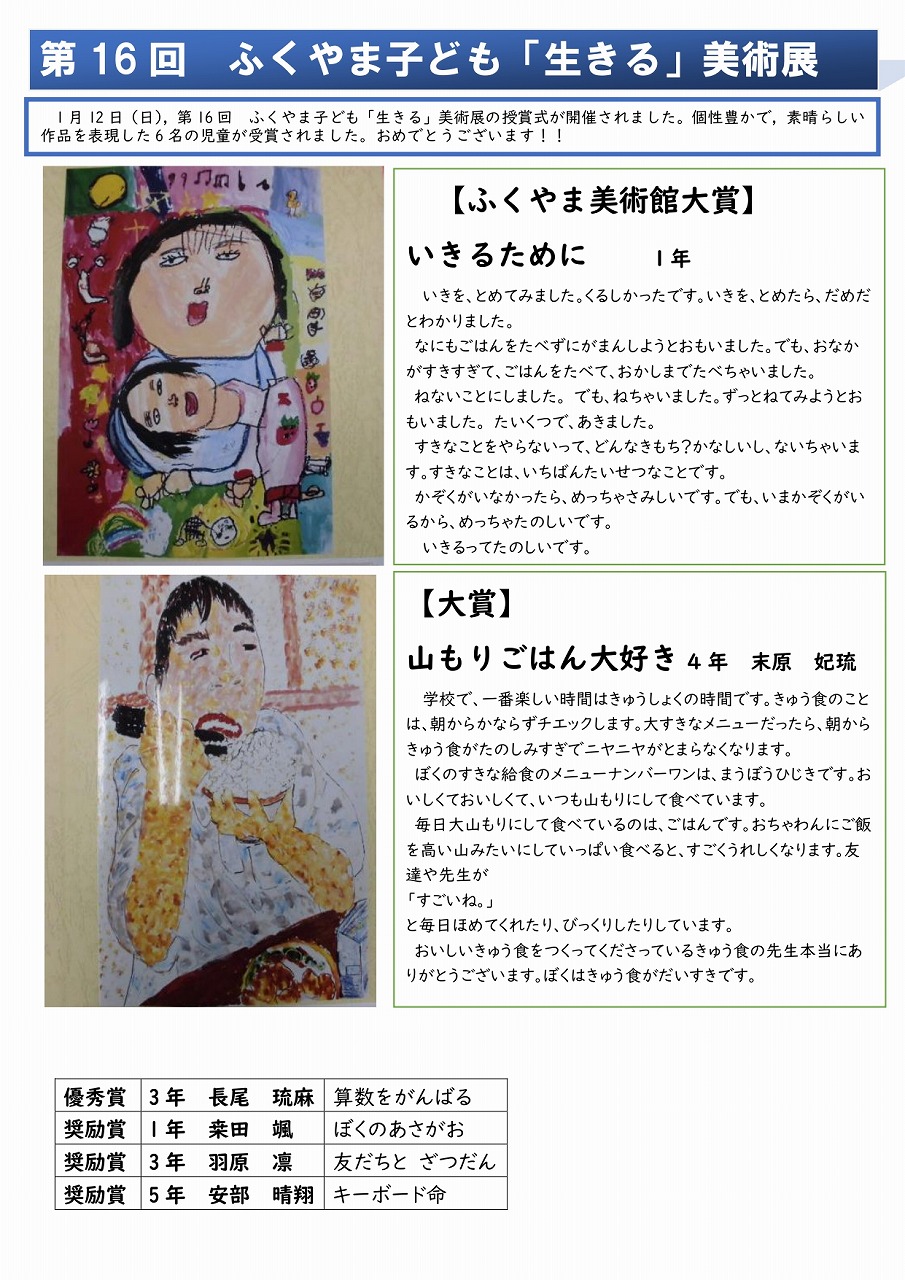 第 16 回　ふくやま子ども「生きる」美術展
1月 12 日（日），第 16 回　ふくやま子ども「生きる」美術展の授賞式が開催されました。個性豊かで，素晴らしい
作品を表現した 6 名の児童が受賞されました。おめでとうございます！！
【ふくやま美術館大賞】
いきるために　　1 年
いきを、とめてみました。くるしかったです。いきを、とめたら、だめだ
とわかりました。
なにもごはんをたべずにがまんしようとおもいました。でも、おなか
がすきすぎて、ごはんをたべて、おかしまでたべちゃいました。
ねないことにしました。 でも、ねちゃいました。ずっとねてみようとお
もいました。 たいくつで、あきました。
すきなことをやらないって、どんなきもち？かなしいし、ないちゃいま
す。すきなことは、いちばんたいせつなことです。
かぞくがいなかったら、めっちゃさみしいです。でも、いまかぞくがい
るから、めっちゃたのしいです。
いきるってたのしいです。
【大賞】
山もりごはん大好き 4 年　末原　妃琉
学校で、一番楽しい時間はきゅうしょくの時間です。きゅう食のこと
は、朝からかならずチエックします。大すきなメニューだったら、朝から
きゅう食がたのしみすぎでニヤニヤがとまらなくなります。
ぼくのすきな給食のメニューナンバーワンは、まうぼうひじきです。お
いしくておいしくて、いつも山もりにして食べています。
毎日大山もりにして食べているのは、ごはんです。おちゃわんにご飯
を高い山みたいにしていっぱい食べると、すごくうれしくなります。友
達や先生が
「すごいね。」
と毎日ほめてくれたり、びっくりしたりしています。
おいしいきゅう食をつくってくださっているきゅう食の先生本当にあ
りがとうございます。ぼくはきゅう食がだいすきです。
優秀賞　3 年　長尾　琉麻　算数をがんばる
奨励賞　1 年　桒田　颯　ぼくのあさがお
奨励賞　3 年　羽原　凛　友だちと ざつだん
奨励賞　5 年　安部　晴翔　キーボード命